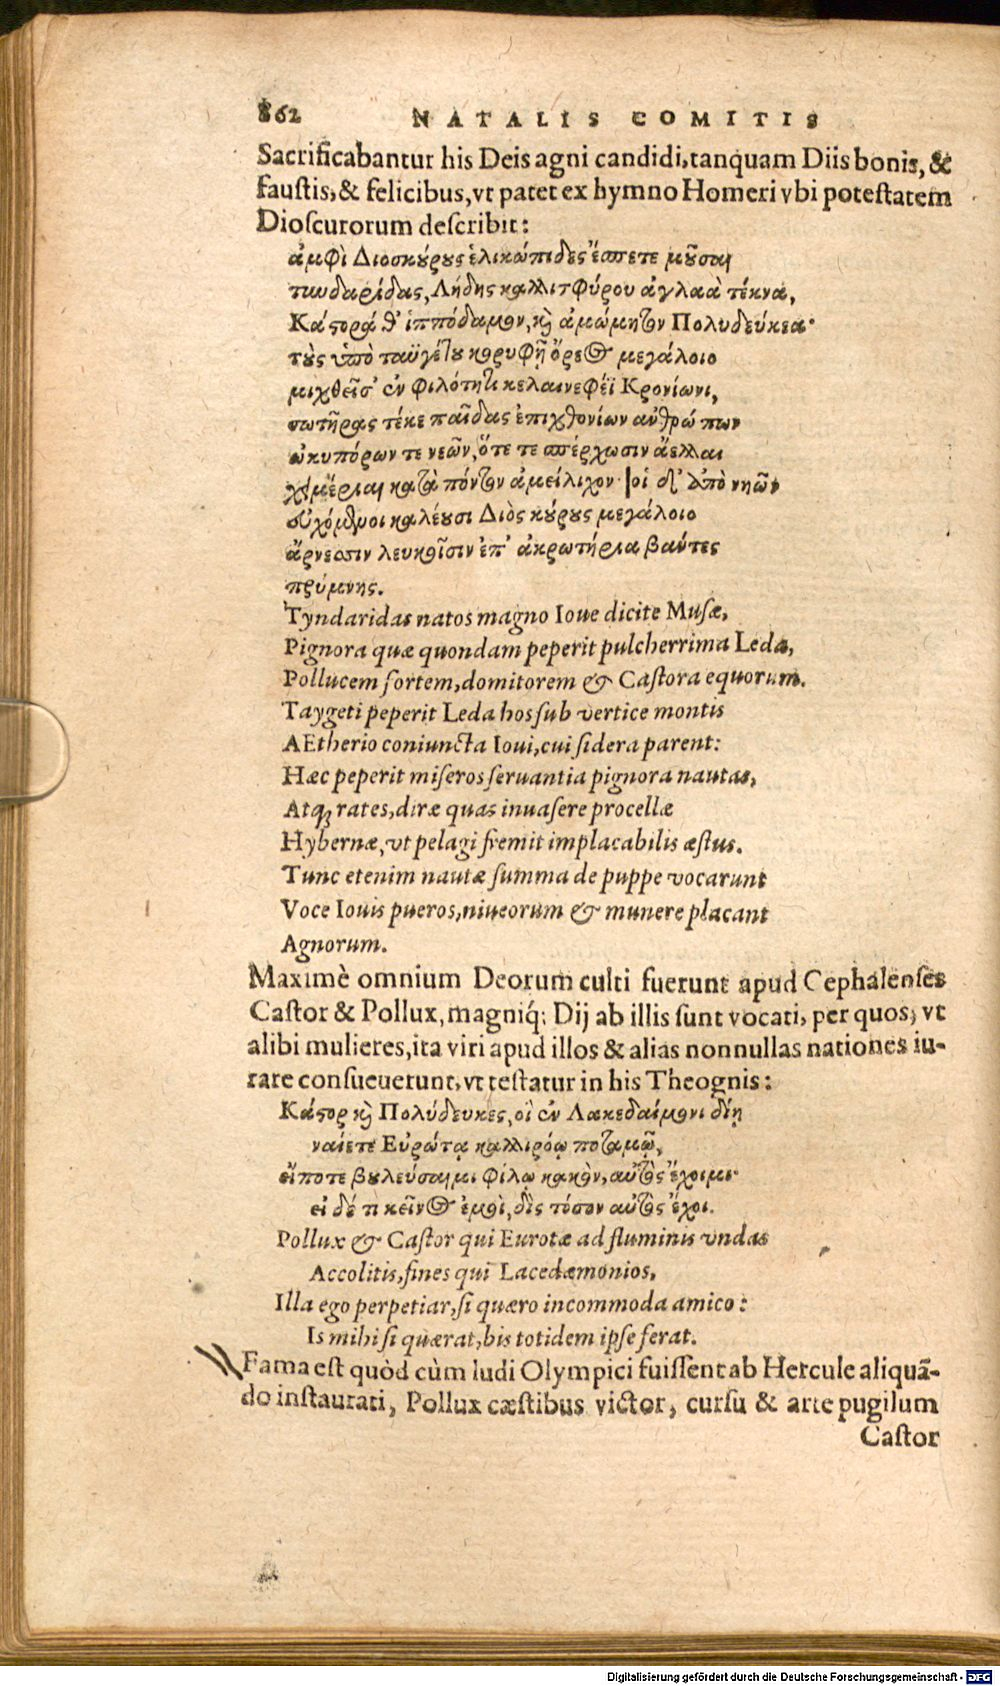 862 NATALIS COMITIS
Sacrificabantur his Deis agni candidi, tanquam Diis bonis, &
faustis, & felicibus, vt patet ex hymno Homeri vbi potestatem
Dioscurorum describit:
ἀμφὶ Διοσκύρȣς ἑλικώπιδες ἔσπετε μȣ͂σαι
τυνδαρίδας, Λήδης καλλισφύρου ἀγλαὰ τέκνα,
Κάϛορά θ' ἱππόδαμον, κὶ ἀμώμητον Πολυδεύκεα·
τȣ̀ς ὑπὸ ταϋγέτȣ κορυφῇ ὄρεος μεγάλοιο
μιχθεῖσ' ἐν φιλότητι κελαινεφέϊ Κρονίωνι,
σωτῆρας τέκε παῖδας ἐπιχθονίων ἀνθρώπων
ὠκυπόρων τε νεῶν, ὅτε τε σπέρχωσιν ἄελλαι
χειμέριαι κατὰ πόντον ἀμείλιχον· οἱ δ' ἀπὸ νηῶν
εὐχόμενοι καλέȣσι Διὸς κύρȣς μεγάλοιο
ἄρνεσσιν λευκοῖσιν ἐπ' ἀκρωτήρια βάντες
πρύμνης.
Tyndaridas natos magno Ioue dicite Musæ,
Pignora quæ quondam peperit pulcherrima Leda,
Pollucem fortem, domitorem & Castora equorum.
Taygeti peperit Leda hos sub vertice montis
AEtherio coniuncta Ioui, cui sidera parent:
Hæc peperit miseros seruantia pignora nautas,
Atq; rates, diræ quas inuasere procellæ
Hybernæ, vt pelagi fremit implacabilis æstus.
Tunc etenim nautæ summa de puppe vocarunt
Voce Iouis pueros, niueorum & munere placant
Agnorum.
Maximè omnium Deorum culti fuerunt apud Cephalenses
Castor & Pollux, magniq́; Dij ab illis sunt vocati, per quos, vt
alibi mulieres, ita viri apud illos & alias nonnullas nationes iu-
rare consueuerunt, vt testatur in his Theognis:
Κάϛορ κὶ Πολύδευκες, οἳ ἐν Λακεδαίμονι δίῃ
ναίετε Εὐρώτᾳ καλλιρόῳ ποταμῷ,
εἴποτε βȣλεύσαιμι φίλῳ κακὸν, αὐτὸς ἔχοιμι·
εἰ δέ τι κεῖνος ἐμοὶ, δὶς τόσον αὐτὸς ἔχοι.
Pollux & Castor qui Eurotæ ad fluminis vndas
Accolitis, fines qui Lacedæmonios,
Illa ego perpetiar, si quæro incommoda amico:
Is mihi si quærat, bis totidem ipse ferat.
Fama est quòd cùm ludi Olympici fuissent ab Hercule aliquã-
do instaurati, Pollux cæstibus victor, cursu & arte pugilum
Castor
Digitalisierung gefördert durch die Deutsche Forschungsgemeinschaft - DFG